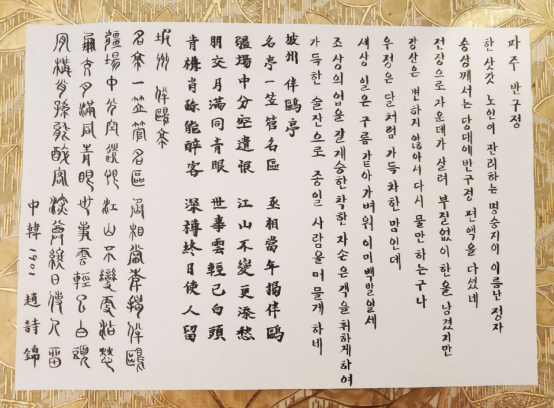 파주 반구정
한 삿갓 노인이 관리하는 명승지의 이름난 정자
승상께서는 당대에 반구정 편액을 다셨네
전장으로 가운데가 잘려 부질없이 한을 남겼지만
강산은 변하지 않아서 다시 물만 하는구나
우정은 달처럼 가득 차 한 맘인데
세상 일은 구름 같아 가벼워 이미 백발일세
조상의 업을 잘 계승한 착한 자손은 객을 취하게 하여
가득한 술잔으로 종일 사람을 머물게 하네
坡州 伴鷗亭
名亭一笠管名區 丞相當年揭伴鷗
疆場中分空遺恨 江山不變更添愁
朋交月滿同青眼 世事雲輕已白頭
肯構肖孫能醉客 深樽終日使人留
坡州 伴鷗亭
名亭一笠管名區 丞相當年揭伴鷗
疆場中分空遺恨 江山不變更添愁
朋交月滿同青眼 世事雲輕已白頭
肯構肖孫能醉客 深樽終日使人留
中韓 1901 趙詩錦